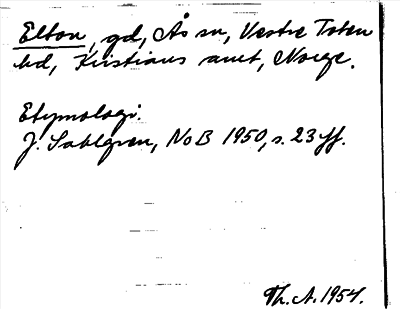 Elton, gd, Ås sn, Vestre Toten
hd, Kristians amt, Norge.
Etymologi.
J. Sahlgren, NoB 1950, s. 23 ff.
Th. A. 1954.